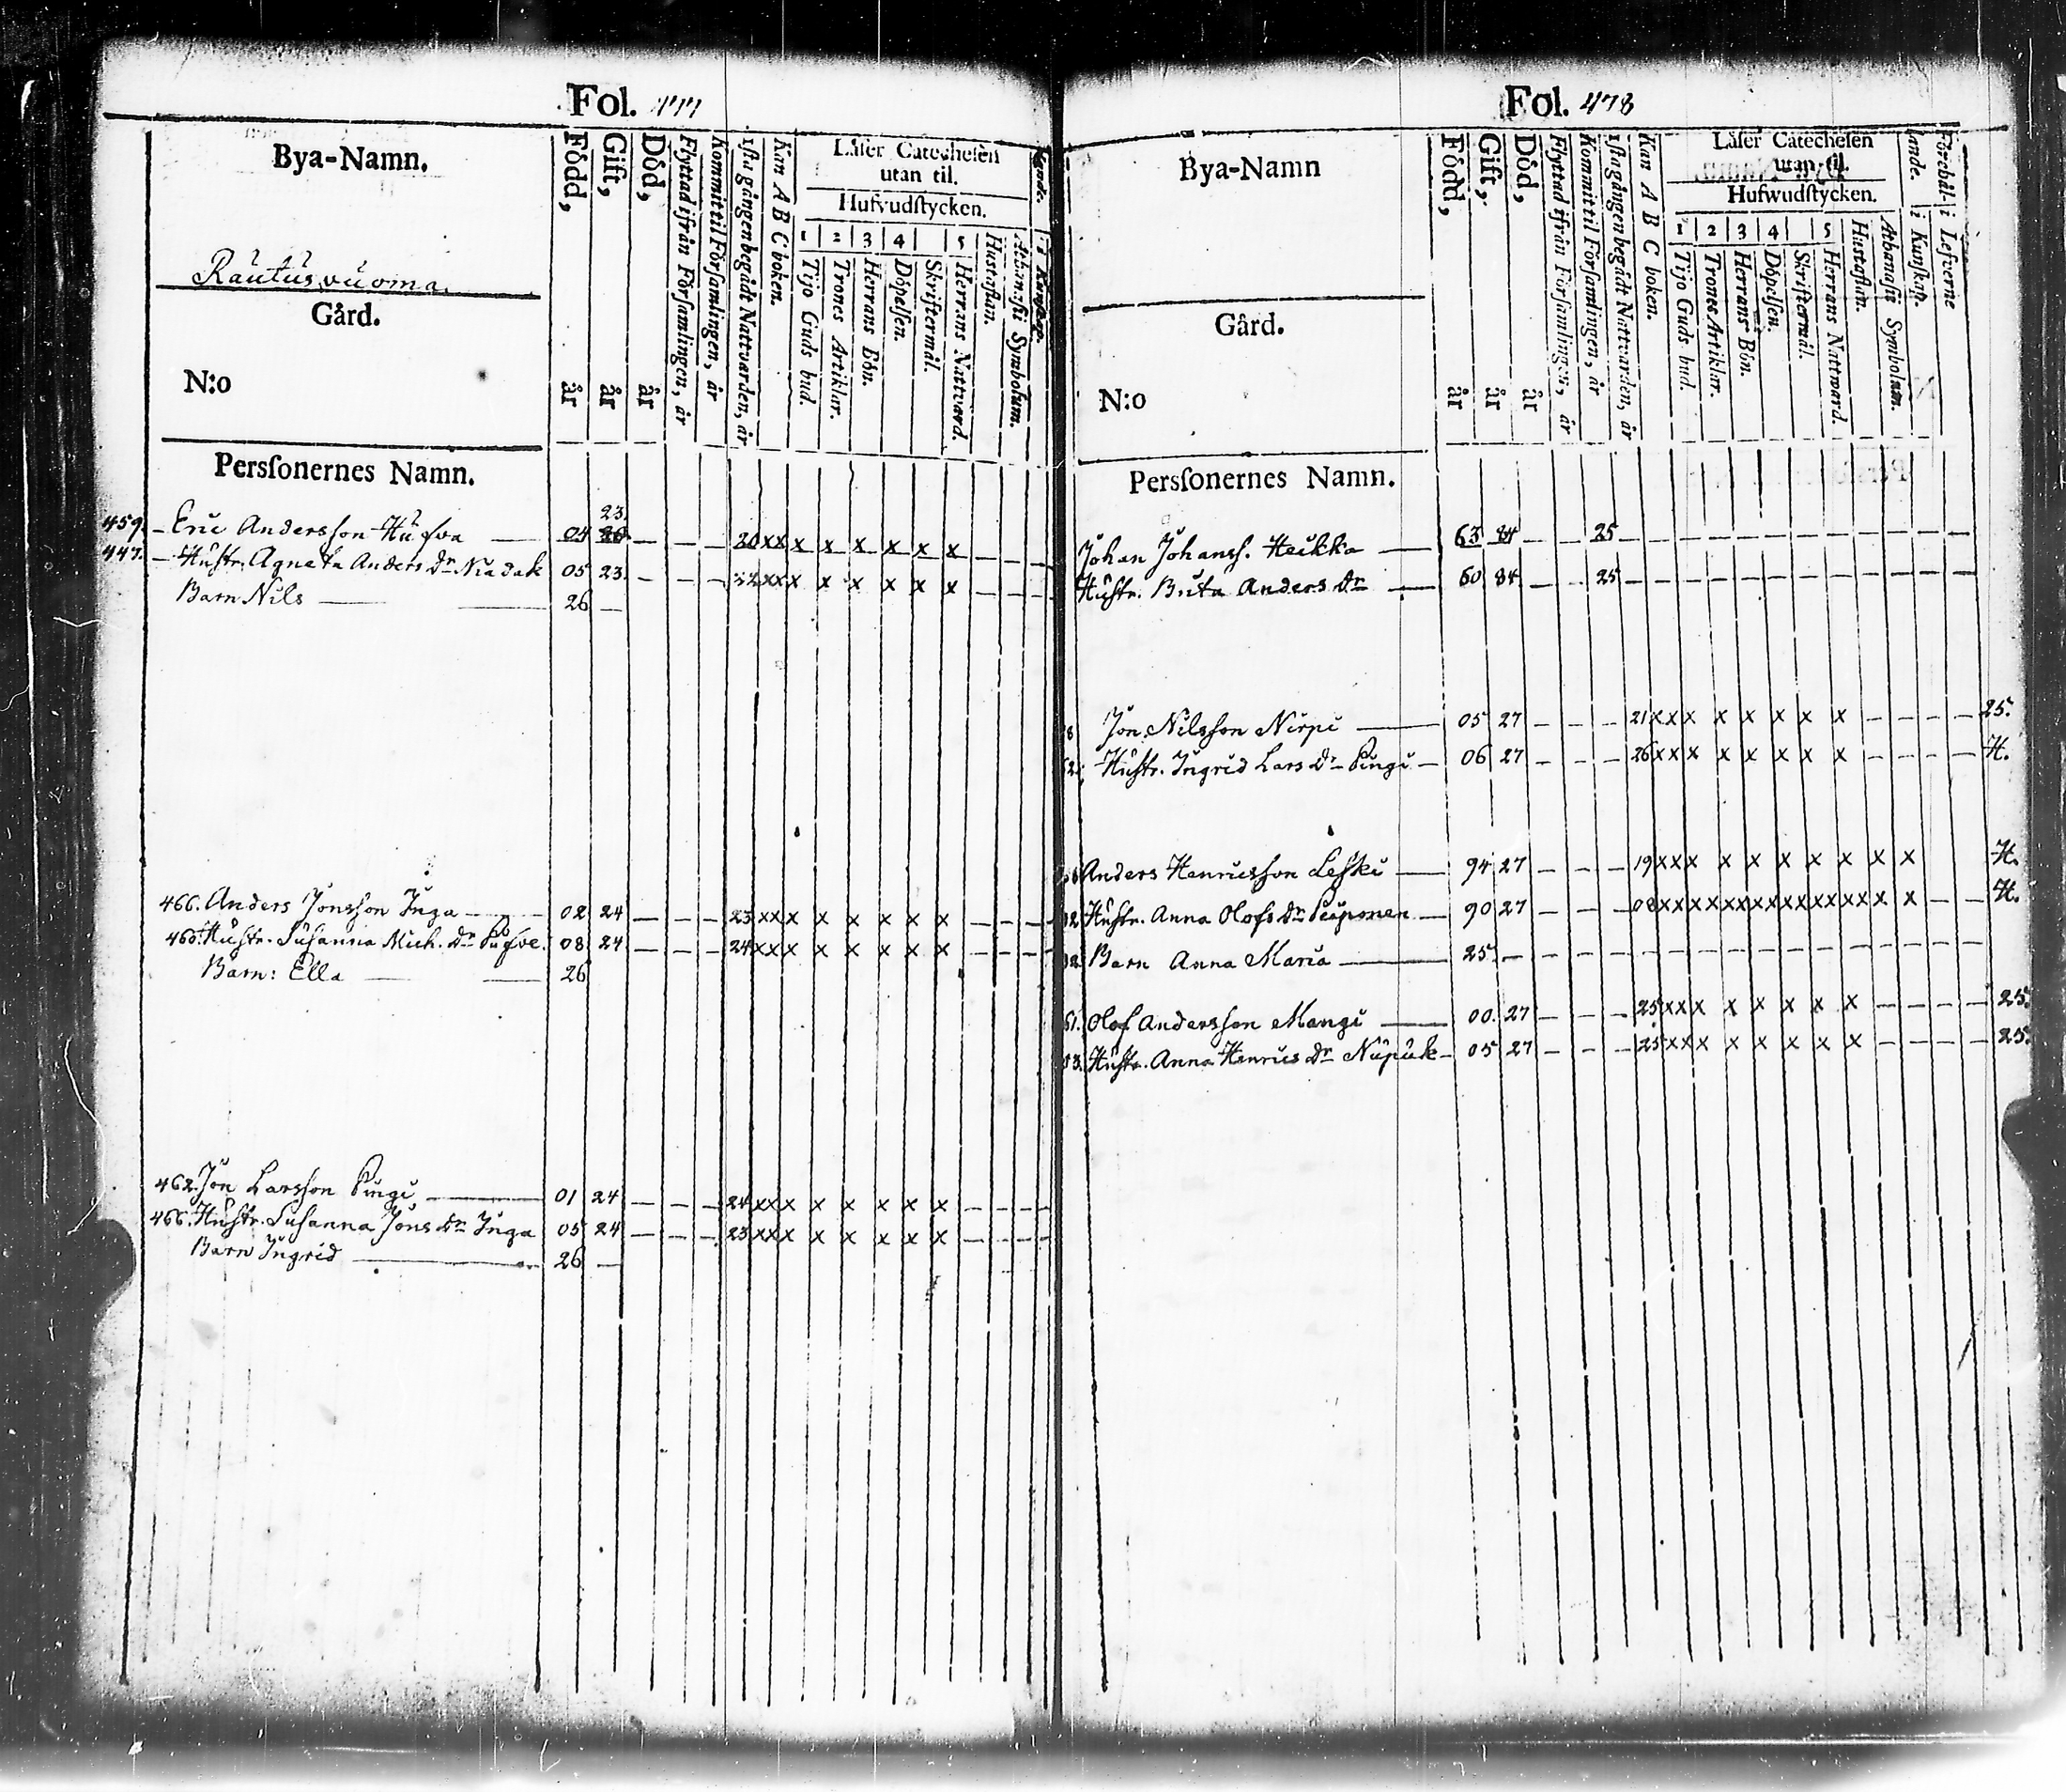 Fol. 477
Bya-Namn.
Rautusvuoma.
Gård.
N:o
Persſonernes Namn.
Född, år
Gift, år
Död, år
Flyttad ifrån Församlingen, år
Kommit til Församlingen, år
1sta gången begådt Nattvarden, år
Kan A B C boken.
Låſer Catecheſen
utan til.
Hufvudſtycken.
1 2 3 4 5
Tijo Guds bud.
Trones Artiklar.
Herrans Bön.
Döpelſen.
Skriftermål.
Herrans Nattvard.
Hustaflan.
Athanasii Symbolum.
23.
459. – Eric Andersson Hufva — 04 26 — — — 20 x x x x x x x x — —
447. – Hustr. Agneta Anders Dr Niadak 05 23 — — — 22 x x x x x x x x — — —
Barn Nils — 26 —
466. Anders Jonsson Inga — 02 24 — — — 23 x x x x x x x x — — —
460. Hustr. Susanna Mich. Dr Pufve. 08 24 — — — 24 x x x x x x x x — — —
Barn: Ella — 26
462. Jon Larsson Pingi — 01 24 — — — 24 x x x x x x x x — — — —
466. Hustr. Susanna Jons Dr Inga 05 24 — — — 23 x x x x x x x x — — — —
Barn Ingrid — 26 —
Fol. 478
Bya-Namn
Gård.
N:o
Persſonernes Namn.
Född, år
Gift, år
Död, år
Flyttad ifrån Församlingen, år
Kommit til Församlingen, år
1sta gången begådt Nattvarden, år
Kan A B C boken.
Låſer Catecheſen
utan til.
Hufwudſtycken.
1 2 3 4 5
Tijo Guds bud.
Trones Artiklar.
Herrans Bön.
Döpelſen.
Skriftermål.
Herrans Nattward.
Hustaflan.
Athanaſii Symbolum.
i Kunſkap.
i Lefverne
Johan Johanss. Heikka — 63 84 — — 25 — — — — — — — — — — — —
Hustr. Brita Anders Dr — 60 84 — — 25 — — — — — — — — — — — —
8 Jon Nilsson Nirpi — 05 27 — — — 21 x x x x x x x x — — — — 25.
62. Hustr. Ingrid Lars Dr Pingi — 06 27 — — — 26 x x x x x x x x — — — — H.
Anders Henricsson Leski — 94 27 — — — 19 x x x x x x x x x x H.
Hustr. Anna Olofs Dr — 90 27 — — — 08 x x x x x x x x x x x x x x x x H.
Barn Anna Maria — 25. — — — — — — — — — — — — — —
61. Olof Andersson Mangi — 00. 27 — — — 25 x x x x x x x x — — — — 25.
03. Hustr. Anna Henrics Dr Nupuk — 05 27 — — — 25 x x x x x x x x — — — — 25.